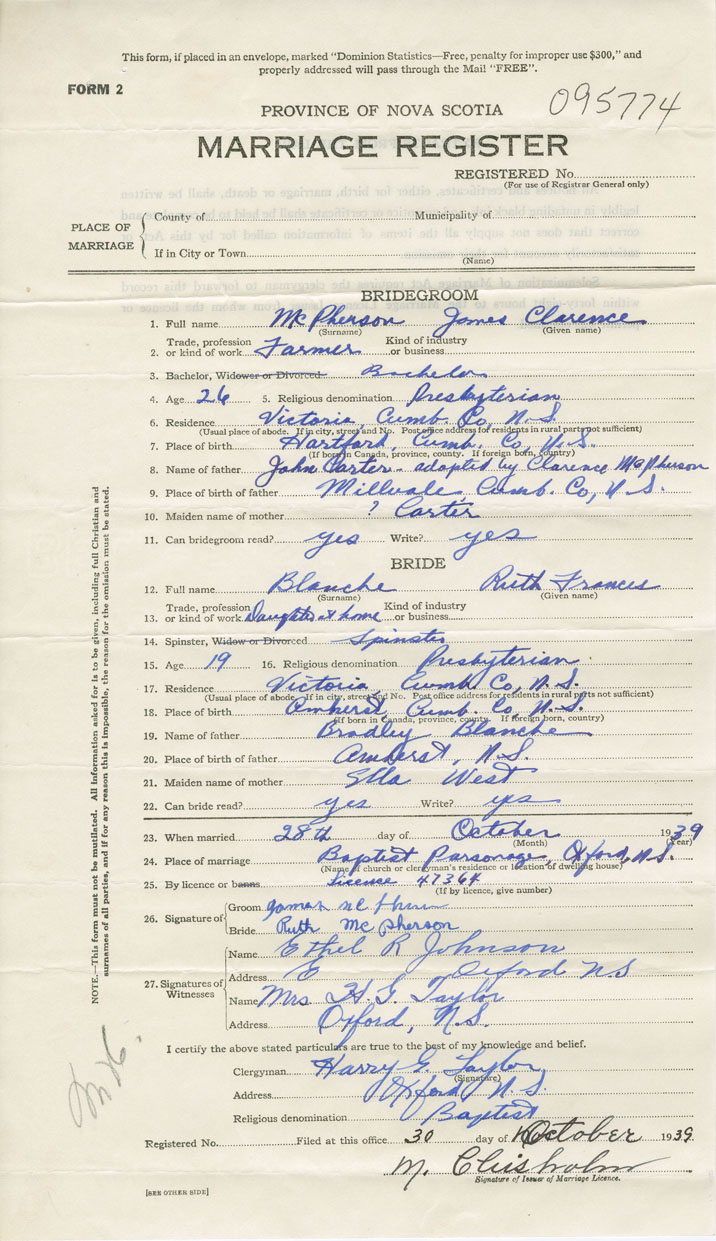 This form, if placed in an envelope, marked "Dominion Statistics—Free, penalty for improper use $300," and
properly addressed will pass through the Mail "FREE".
FORM 2
095774
PROVINCE OF NOVA SCOTIA
MARRIAGE REGISTER
REGISTERED No.
(For use of Registrar General only)
PLACE OF MARRIAGE
County of Municipality of
If in City or Town
(Name)
BRIDEGROOM
1. Full name McPherson James Clarence
(Surname) (Given name)
2. Trade, profession or kind of work Farmer Kind of industry or business
3. Bachelor, Widower or Divorced Bachelor
4. Age 26 5. Religious denomination Presbyterian
6. Residence Victoria, Cumb. Co, N.S.
(Usual place of abode. If in city, street and No. Post office address for residents in rural parts not sufficient)
7. Place of birth Hartford, Cumb. Co, N.S.
(If born in Canada, province, county. If foreign born, country)
8. Name of father John Carter - adopted by Clarence McPherson
9. Place of birth of father Millvale, Cumb. Co, N.S.
10. Maiden name of mother ? Carter
11. Can bridegroom read? yes Write? yes
BRIDE
12. Full name Blanche Ruth Frances
(Surname) (Given name)
13. Trade, profession or kind of work Daughter at home Kind of industry or business
14. Spinster, Widow or Divorced Spinster
15. Age 19 16. Religious denomination Presbyterian
17. Residence Victoria, Cumb Co, N.S.
(Usual place of abode. If in city, street and No. Post office address for residents in rural parts not sufficient)
18. Place of birth Amherst, Cumb. Co, N.S.
(If born in Canada, province, county. If foreign born, country)
19. Name of father Bradley Blanche
20. Place of birth of father Amherst, N.S.
21. Maiden name of mother Ella West
22. Can bride read? yes Write? yes
23. When married 28th day of October 1939
(Month) (Year)
24. Place of marriage Baptist Parsonage, Oxford, N.S.
(Name of church or clergyman's residence or location of dwelling house)
25. By licence or banns licence 47364
(If by licence, give number)
26. Signature of
Groom James
Bride Ruth McPherson
27. Signatures of Witnesses
Name Ethel R Johnson
Address Oxford NS
Name Mrs. H. G. Taylor
Address Oxford, N.S.
I certify the above stated particulars are true to the best of my knowledge and belief.
Clergyman Harry G. Taylor
(Signature)
Address Oxford N.S.
Religious denomination Baptist
Registered No. Filed at this office 30 day of October 1939
M. Chisholm
Signature of Issuer of Marriage Licence.
[SEE OTHER SIDE]
NOTE.—This form must not be mutilated. All information asked for is to be given, including full Christian and
surnames of all parties, and if for any reason this is impossible, the reason for the omission must be stated.